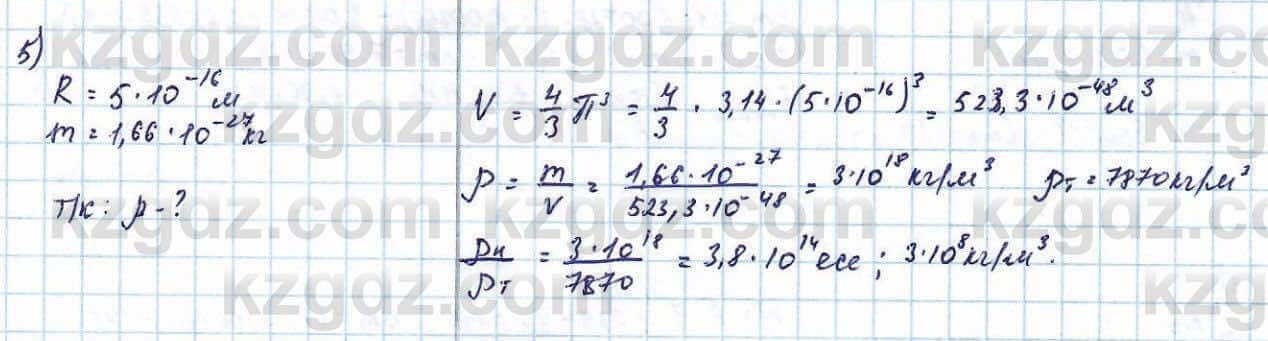 5)
R = 5·10⁻¹⁶ м
m = 1,66·10⁻²⁷ кг
Т/к: ρ - ?
V = 4/3 π³ = 4/3 · 3,14 · (5·10⁻¹⁶)³ = 523,3·10⁻⁴⁸ м³
ρ = m/V = 1,66·10⁻²⁷/523,3·10⁻⁴⁸ = 3·10¹⁸ кг/м³ ρт = 7870 кг/м³
ρн/ρт = 3·10¹⁸/7870 = 3,8·10¹⁴ есе; 3·10⁸ кг/м³.
kzgdz.com kzgdz.com kzgdz.com
kzgdz.com kzgdz.com kzgdz.com
kzgdz.com kzgdz.com kzgdz.com
kzgdz.com kzgdz.com kz